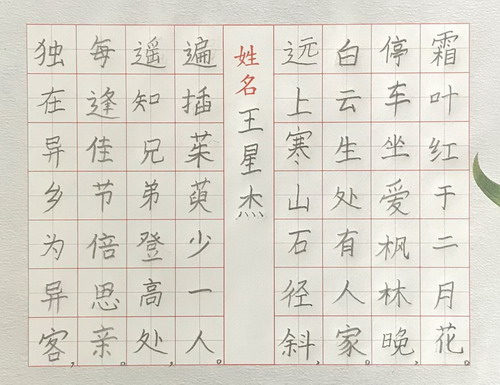 独在异乡为异客，
每逢佳节倍思亲。
遥知兄弟登高处，
遍插茱萸少一人。
姓名王星杰
远上寒山石径斜，
白云生处有人家。
停车坐爱枫林晚，
霜叶红于二月花。